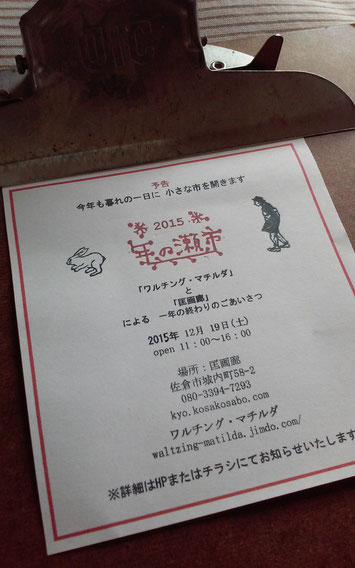 予告
今年も暮れの一日に 小さな市を開きます
2015
年の瀬市
「ワルチング・マチルダ」
と
「匡画廊」
による 一年の終わりのごあいさつ
2015年 12月 19日(土)
open 11:00〜16:00
場所:匡画廊
佐倉市城内町58-2
080-3394-7293
kyo.kosakosabo.com
ワルチング・マチルダ
waltzing-matilda.jimdo.com/
※詳細はHPまたはチラシにてお知らせいたします